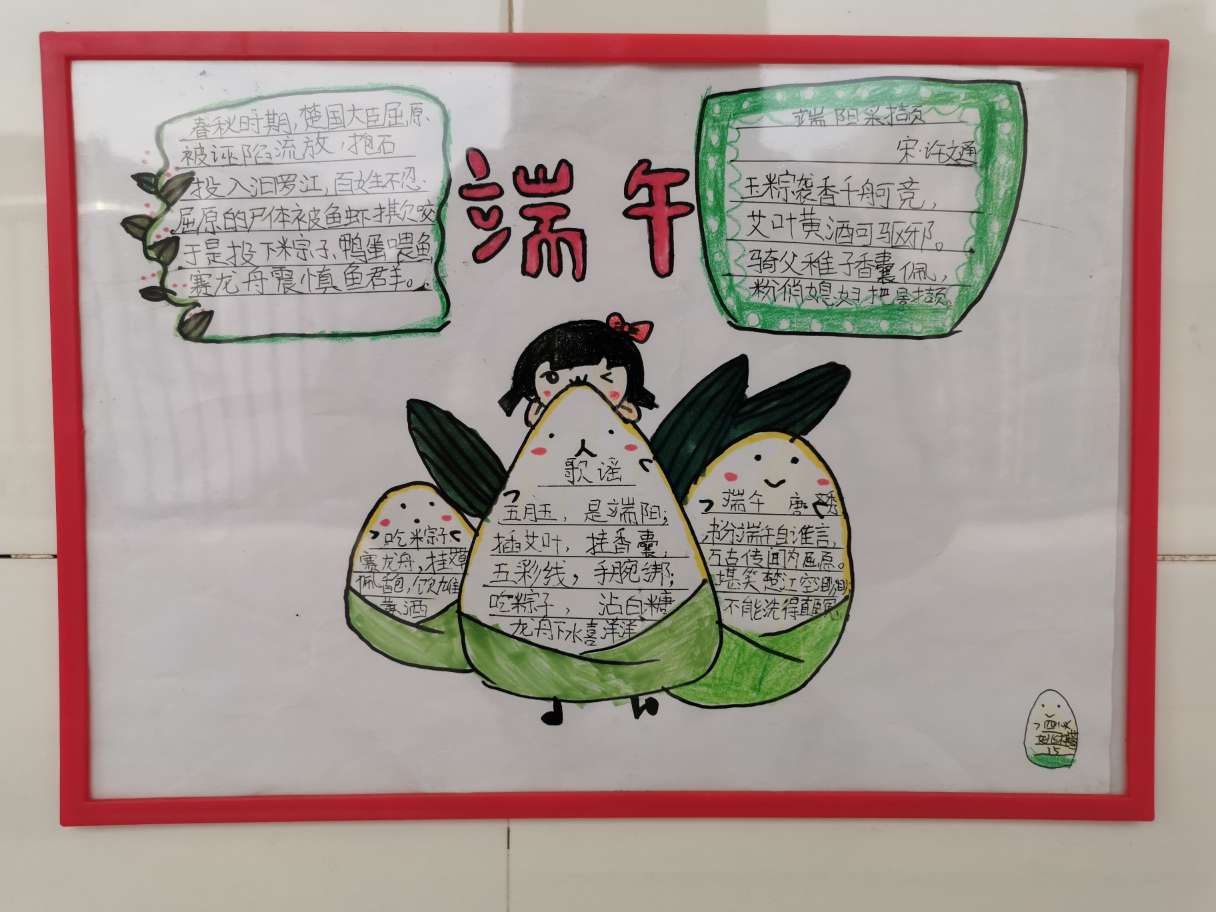 春秋时期,楚国大臣屈原
被诬陷流放,抱石
投入汨罗江,百姓不忍
屈原的尸体被鱼虾
于是投下米宗子、鸭蛋喂鱼
赛龙舟震慎鱼君羊。
端午
端阳采撷
宋·许文通
玉粽袭香千舟竞,
艾叶黄酒可驱邪。
骑父稚子香囊佩,
粉俏媳妇把景撷。
歌谣
五月五,是端阳;
插艾叶,挂香囊,
五彩线,手腕绑;
吃粽子, 沾白糖
龙舟下水喜洋洋
吃米宗子
赛龙舟,挂
佩香包,饮雄
黄酒
端午 唐
端午自谁言,
万古传闻为屈原。
堪笑楚江空
不能洗得直臣